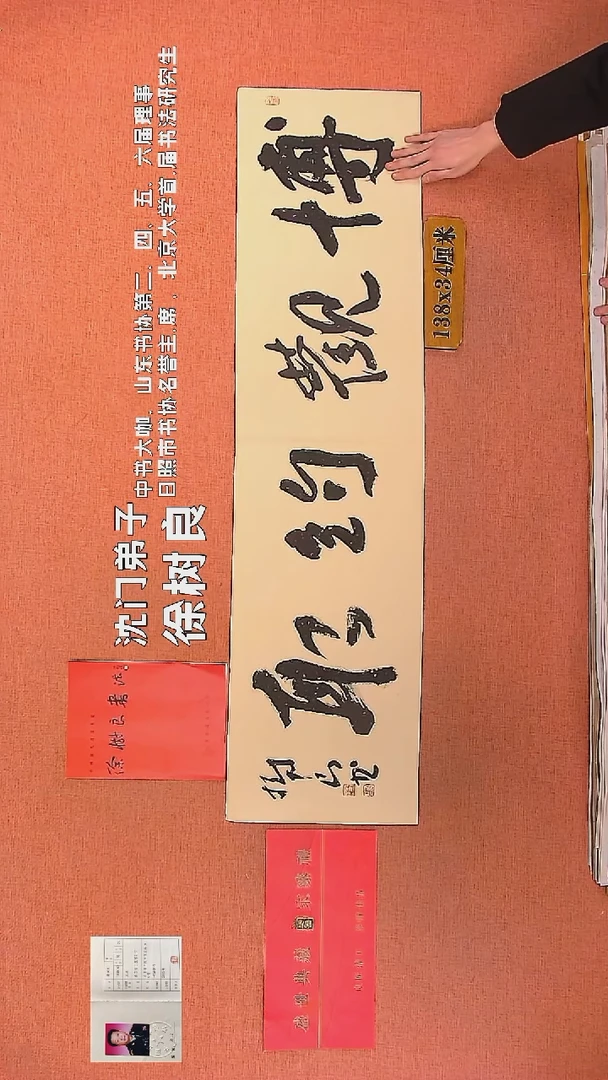 沈门弟子
徐树良
中书大咖、山东书协第二、四、五、六届理事
日照市书协名誉主席、北京大学首届书法研究生
博觀約取
樹良书
138x34厘米
徐樹良書法